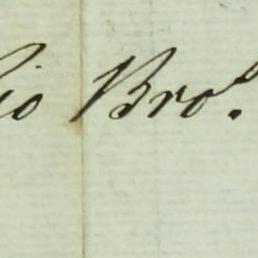 io Bro.